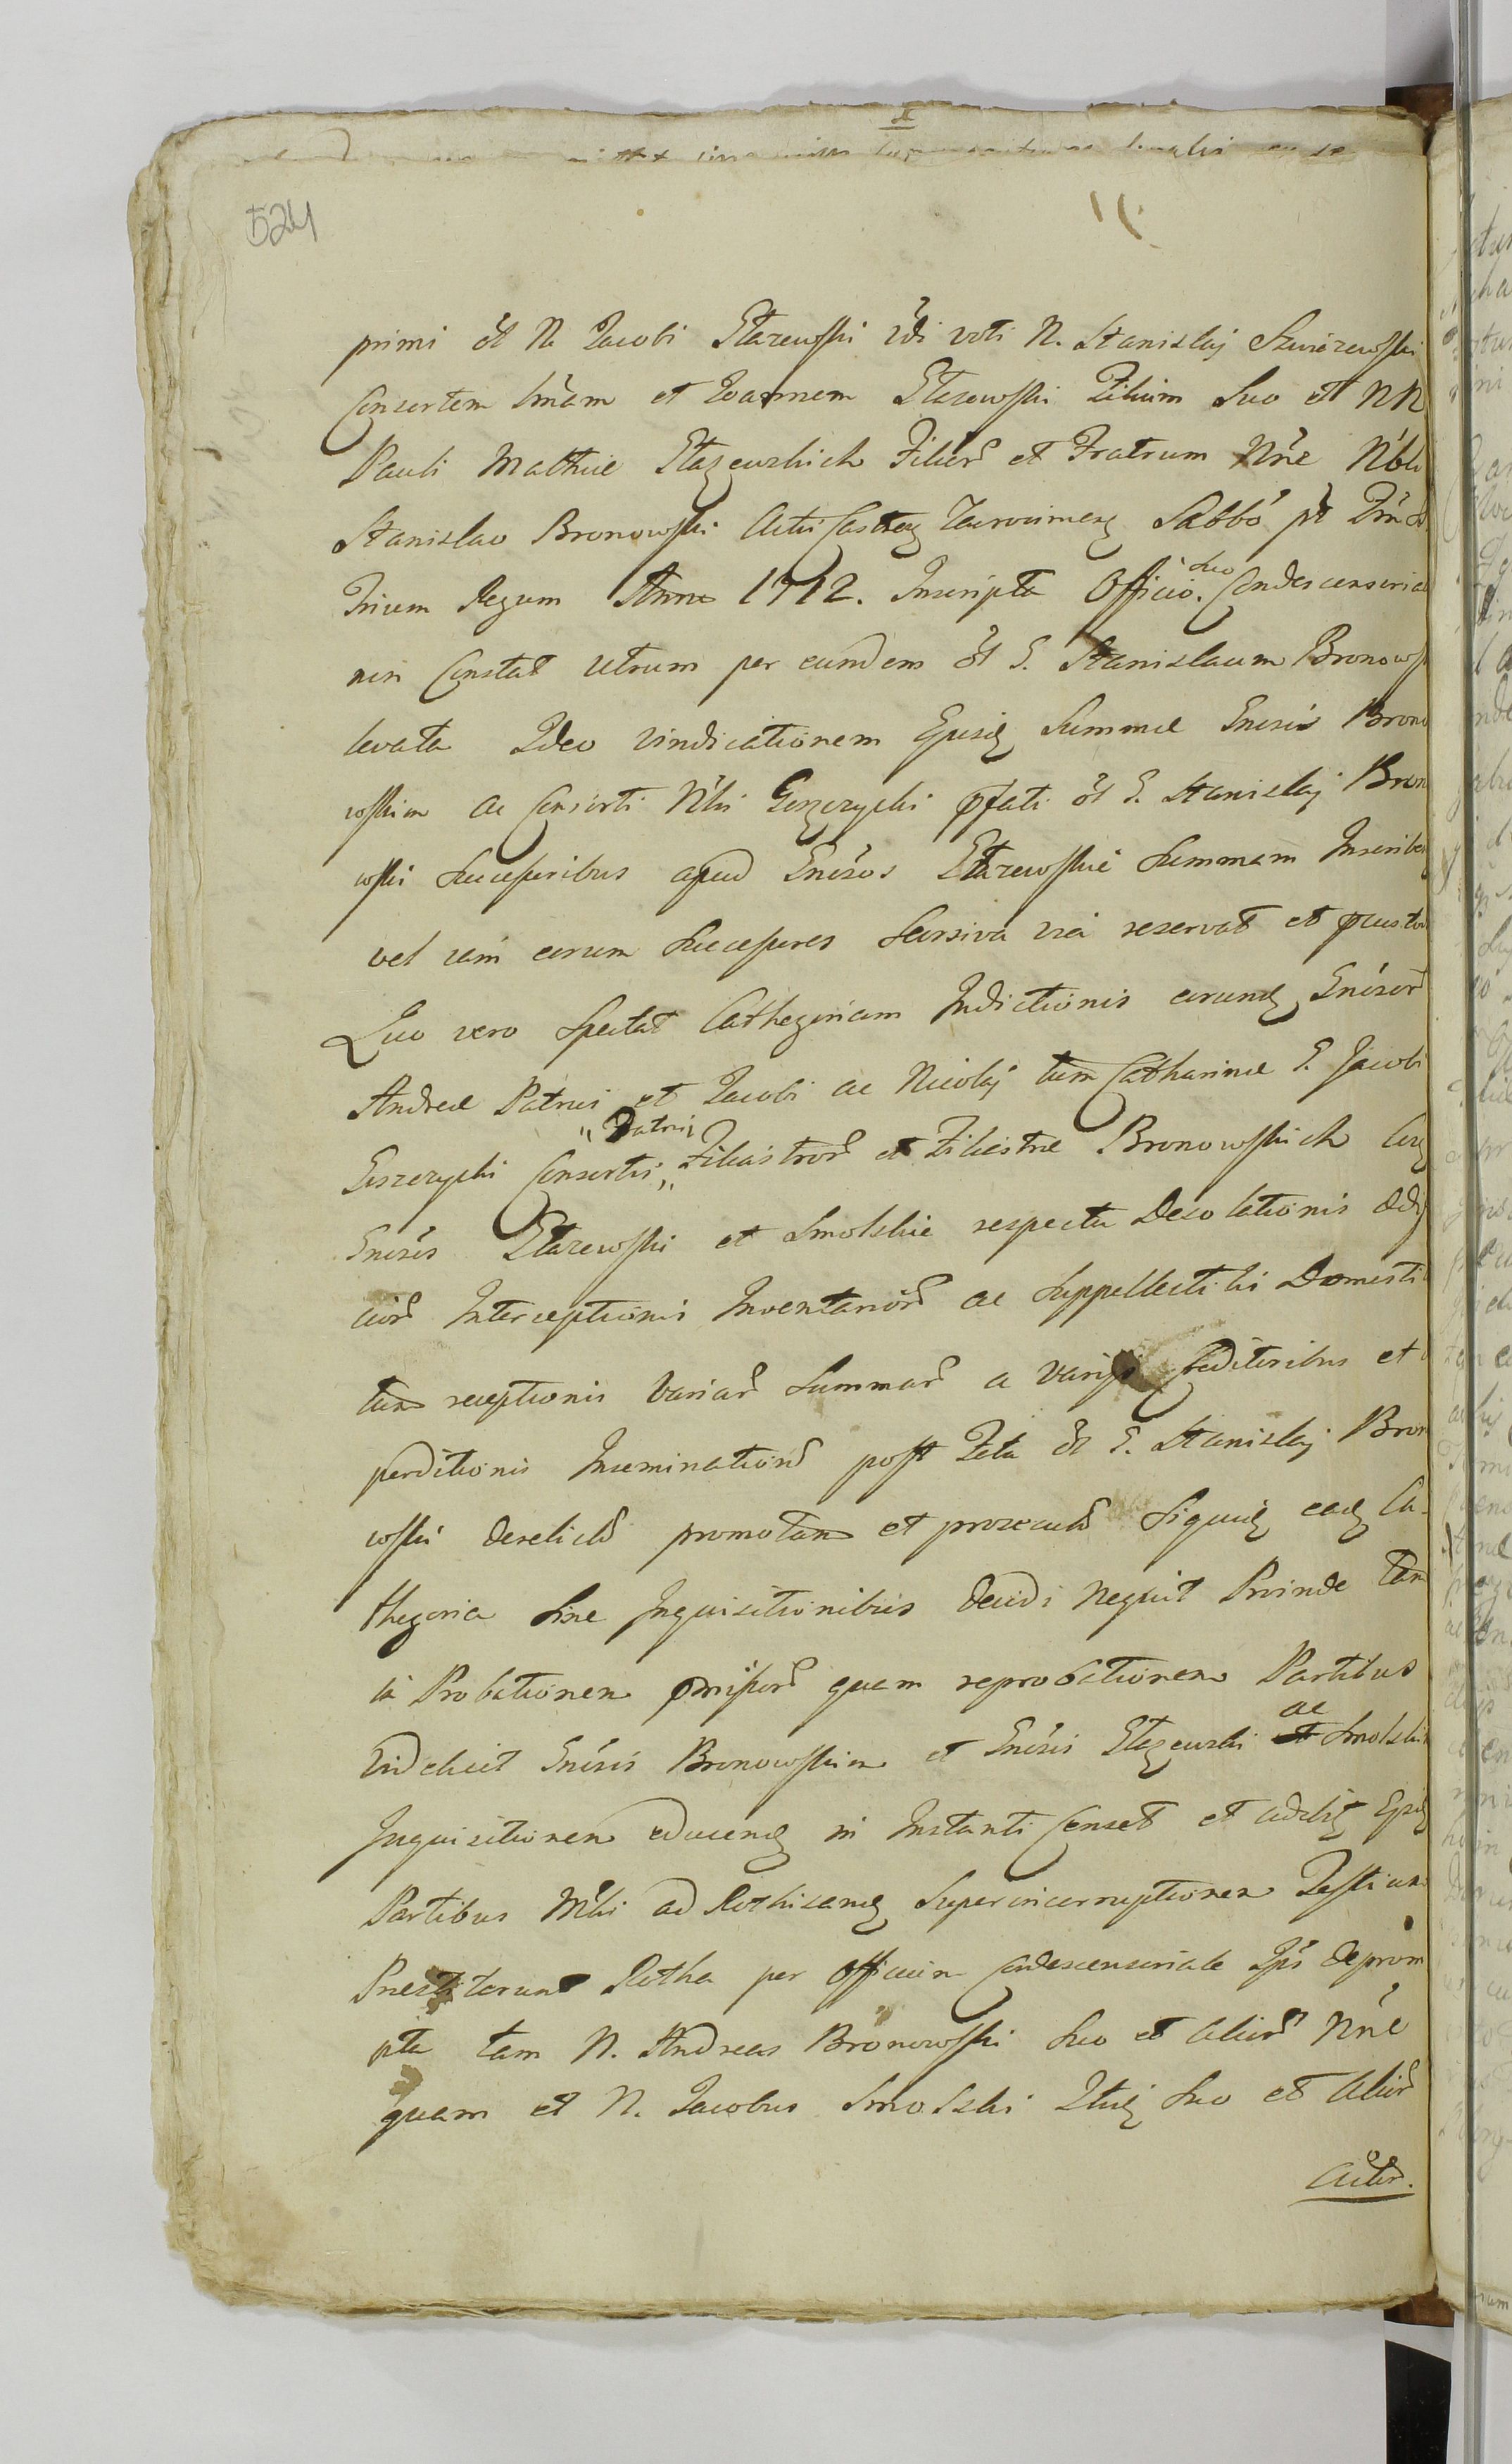 524
primi ol N. Jacobi Stazewski 2di voti N. Stanislaj
Consortem Smam et Joannem Stazewski Filium Suo et NN
Pauli Mathiae Stazewskich Filior et Fratrum Nne Nbli
Stanislao Bronowski Actis Castren Sabbo pt
Trium Regum Anno 1712. Inscripta Officio suo Condescensoria
non Constat utrum per eundem ol G. Stanislaum Bronows
levata Ideo vindicationem Ejusd Summae Gnisis Brono
wskim ac Consorti Nbli Goszczycki pfati ol G. Stanislaj Bron
wski Successoribus apud Gnisos Stazewskie Summam Inscriben
vel eorum Successores Cursiva via reservat et
Quo vero Spectat Cathegoriam Indictionis eorund Gnisor
Andreae Patrui et Jacobi ac Nicolaj tum Catharinae G. Jacobi
Goszczycki Consortis, "Patrui" Filiastror et Filiastrae Bronowskich
Gnisis Stazewski et Smolskie respectu Desolationis Aedi
cior Interceptionis Inventarior ac Suppellectilis Domesti
tum receptionis Variar Summar a varijs Creditoribus et
perditionis Inseminationu post Fata ol G. Stanislaj Bron
wski derelictu promotam et prosecut Siquid ead Ca-
thegoria Sine Inquisitionibus decidi Nequit Proinde tam
in Probationem pmissor quam reprobationem Partibus
Videlicet Gnisis Bronowskim et Gnisis Stazewski ac Smolski
Inquisitionem educend in Instanti Censet et Ejusd
Partibus ad Rothisand Super incorruptionem Testium
Praestiterunt Rotha per Officium Condescensoriale Ipis deprom
pta tam N. Andreas Bronowski Suo et Alior Nne
quam et N. Jacobus Smolski Suo et Alior
Actor.